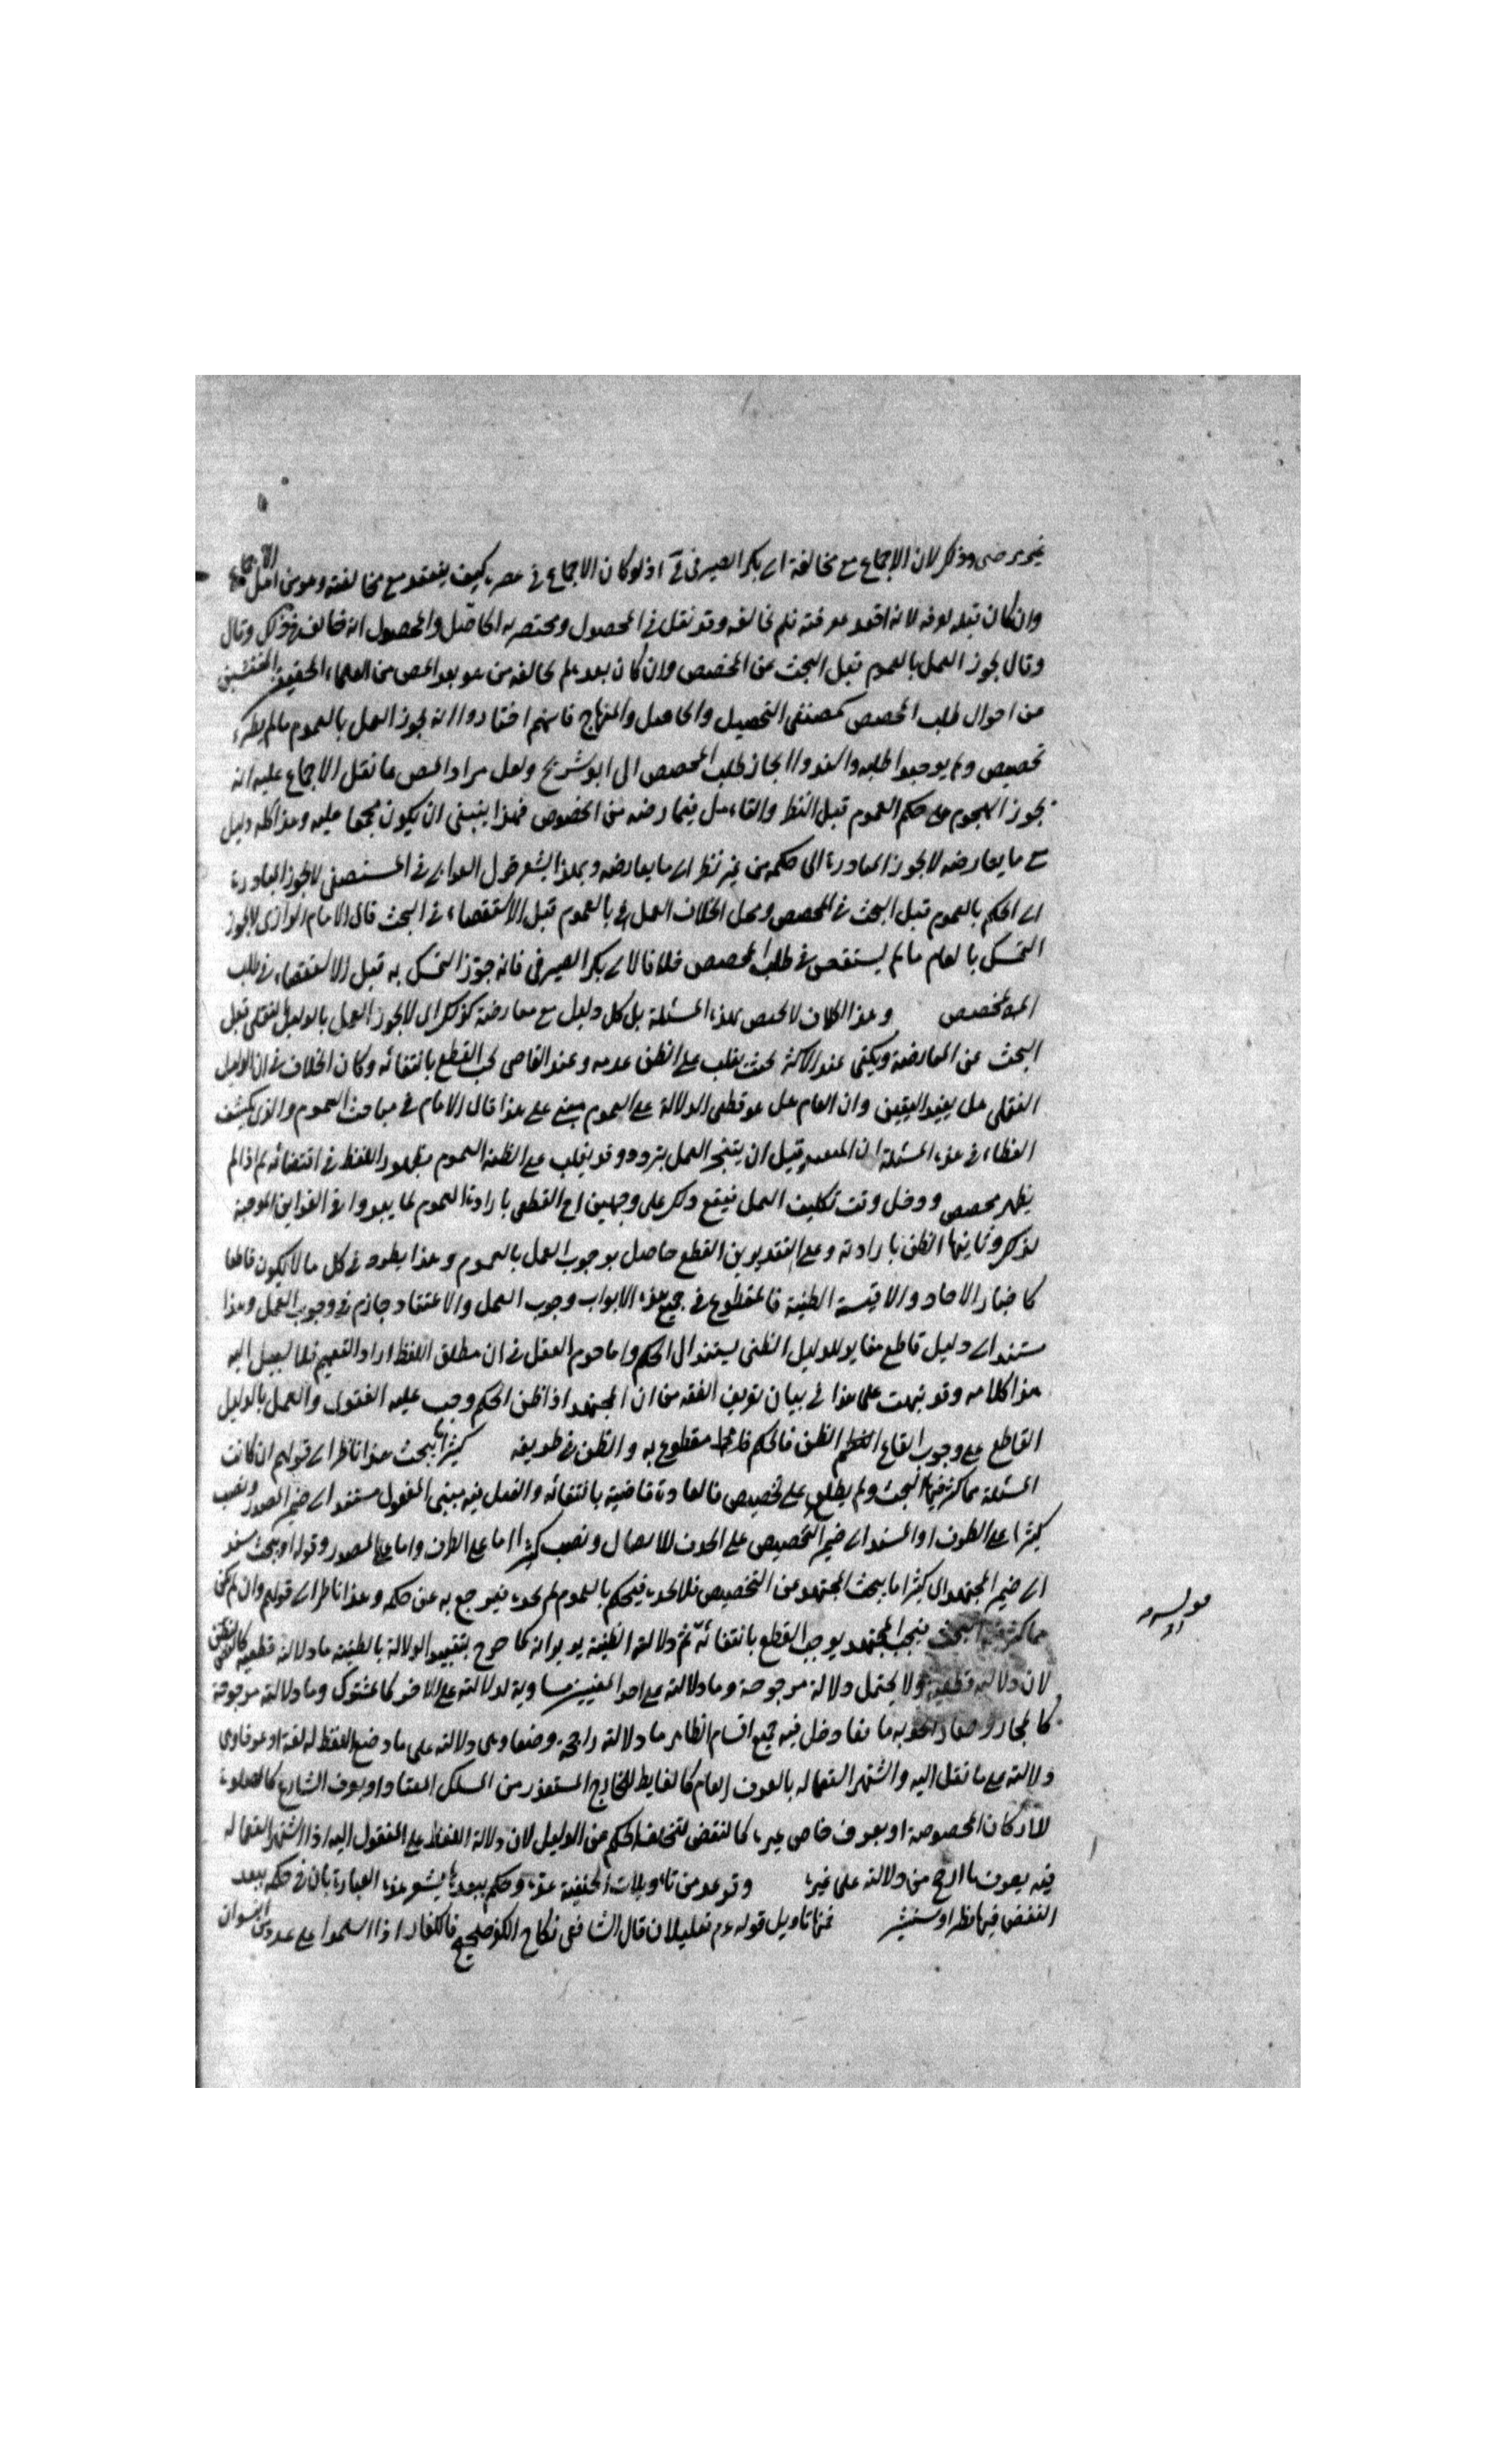 غير مرضى وذلك لان الاجماع مع مخالفة ابى بكر الصيرفى فى اذ لو كان الاجماع فى عصره كيف ينعقد مع مخالفته وهو من اهل الاجماع
وان كان قبله لعرفه لانه اقعد بمعرفته فلم يخالفه وقد نقل فى المحصول ومختصريه الحاصل والمحصول انه خالف فى ذلك وقال
وقال يجوز العمل بالعموم قبل البحث عن المخصص وان كان بعده لم يخالفه من هو بعد المص من العلماء المحققين المفتشين
من احوال طلب المخصص كمصنفى التحصيل والحاصل والمنهاج فانهم اختاروا انه يجوز العمل بالعموم مالم يظهر
تخصيص ولم يوجبوا طلبه واسندوا ايجاز طلب المخصص الى ابو شريح ولعل مراد المص مما نقل الاجماع عليه انه
يجوز الهجوم على حكم العموم قبل النظر والتامل فيما رضه من الخصوص فهذا ينبغى ان يكون مجمعا عليه وهذا كله دليل
مع ما يعارضه لا يجوز المبادرة الى حكمه من غير نظر الى ما يعارضه وبهذا يشعر قول الغزالى فى المستصفى لا يجوز المبادرة
الى الحكم بالعموم قبل البحث فى المخصص ومحل الخلاف العمل بالعموم قبل الاستقصاء فى البحث قال الامام الرازى لا يجوز
التمسك بالعام ما لم يستقص فى طلب المخصص خلافا لابى بكر الصيرفى فانه جوز التمسك به قبل الاستقصاء فى طلب
المخصص وهذا الخلاف لا يختص بهذه المسئلة بل كل دليل مع معارضة كذلك اى لا يجوز العمل بالدليل النقلى قبل
البحث عن المعارضة ويكفى عند الاكثر بحث يغلب على الظن عدمه وعند القاضى يجب القطع بانتفائه وكان الخلاف فى ان الدليل
النقلى هل يفيد اليقين وان العام هل هو قطعى الدلالة على العموم مبنى على هذا قال الامام فى مباحث العموم والذى يكشف
الغطاء فى هذه المسئلة ان قبل ان يتنجز العمل يتردد وقد يغلب على الظنه العموم بظهور اللفظ فى اقتضائه ثم اذا لم
يظهر مخصص ودخل وقت تكليف العمل فيقع ذلك على وجهين اح القطعى بارادة العموم لما يبدو فى القراين الموجبة
لذلك وثانيهما الظن بارادته وعلى التقديرين القطع حاصل بوجوب العمل بالعموم وهذا يطرد فى كل ما لا يكون قاطعا
كاخبار الاحاد والاقيسة الظنية فالمقطوع فى جميع هذه الابواب وجوب العمل والاعتقاد جازم فى وجوب العمل وهذا
مستند الى دليل قاطع مغاير للدليل الظنى يستند الى الحكم واما حزم العقل فى ان مطلق اللفظ اراد التعميم فلا سبيل اليه
هذا كلامه وقد نبهت على هذا فى بيان تعريف الفقه من ان المجتهد اذا ظن الحكم وجب عليه الفتوى والعمل بالدليل
القاطع على وجوب اتباع الظن فالحكم مقطوع به والظن فى طريقه كثيرا ما يبحث هذا ناظر الى قولهم ان كانت
المسئلة مما كثر فيها البحث ولم يطلع على تخصيص فالعادة قاضية بانتفائه والفعل فيه مبنى المفعول مستند الى ضمير المصدر ونصب
كثيرا على الظرف او المسند الى ضمير التخصيص على الحذف للايصال ونصب كثيرا اما على الظرف واما على المصدر وقوله او يبحث مسند
الى ضمير المجتهد اى كثيرا ما يبحث المجتهد عن التخصيص فلا يجده فيحكم بالعموم ثم يجده فيرجع به عن حكمه وهذا ناظر الى قولهم وان لم يكن
مما كثر فيه البحث فبحث المجتهد يوجب القطع بانتفائه ثم دلالته الظنية يريد انه كما خرج بتقييد الدلالة بالظنية ما دلالته قطعية كالنص
لان دلالته قطعية ولا يحتمل دلالة مرجوحة وما دلالته على احد المعنيين مساوية لدلالته على الاخر كالمشترك وما دلالته مرجوحة
كالمجاز دخل فيه جميع اقسام الظاهر ما دلالته راجحة وضعا وهى دلالته على ما وضع اللفظ له لغة او عرفا وهى
دلالته على ما نقل اليه واشتهر استعماله بالعرف العام كالغايط للخارج المستقذر من المسلك المعتاد او بعرف الشارع كالصلوة
للاركان المخصوصة او بعرف خاص غيره كالنقض لتخلف الحكم عن الدليل لان دلالة اللفظ على المنقول اليه اذا اشتهر استعماله
فيه بعرف ما ارجح من دلالته على غيره وقد عد من تاويلات الحنفية عدة وحكم ببعدها يشعر هذه العبارة بان فى حكم ببعد
النقض فيها نظرا وسنشير فمنها تاويل قوله عم تعليلا ن قال الشافعى نكاح الكفر صحيح فالكفار اذا اسلموا على عدد من النسوان